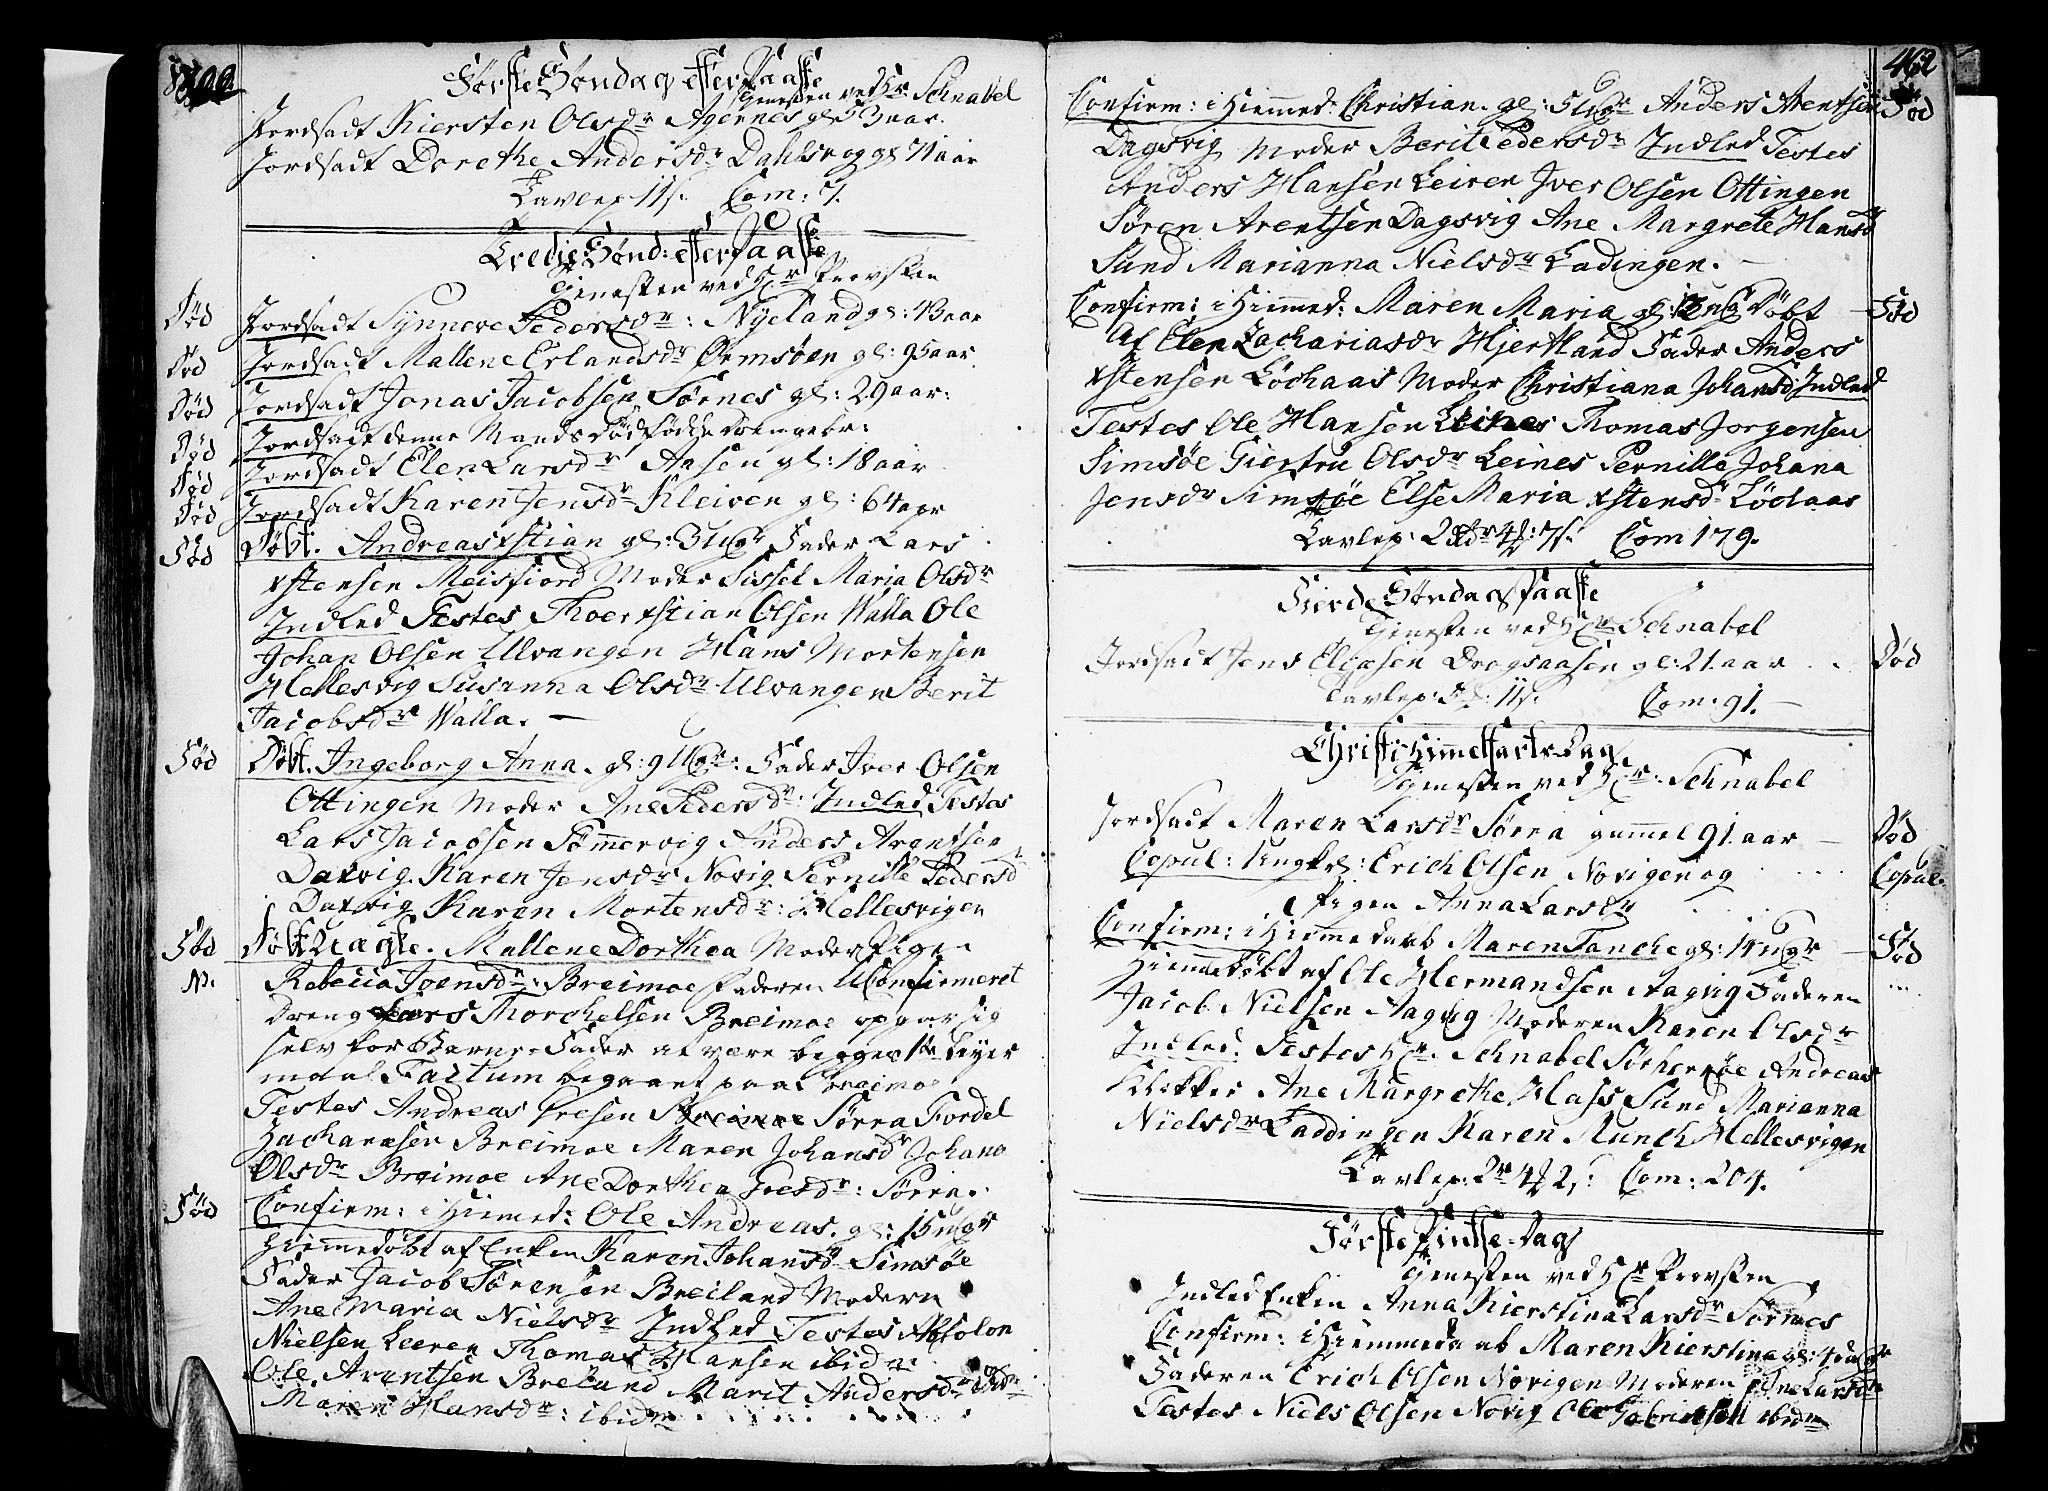 Første Søndag efter Paaske
Tienesten ved Hr Schnabel
Jordsadt Kiersten Olsdr Agernes gl 53 aar.
Jordsadt Dorethe Andersdr Dahlsvog gl 71 aar
Tavlep: 11 s. Com: 7.
Tredie Sønd: efter Paaske
Tienesten ved Hr Provsten
Død Jordsadt Synneve Pedersdr: Nyeland gl: 43 aar
Død Jordsadt Mallene Erlandsdr Ormsøen gl: 95 aar
Død Jordsadt Jonas Jacobsen Sørnes gl: 29 aar:
Død Jordsadt denne Mands Dødfødde Drengebr:
Død Jordsadt Elen Larsdr Aasen gl: 18 aar
Død Jordsadt Karen Jensdr Kleiven gl: 64 aar
Fød Døbt. Andreas xstian gl: 3 Ugr Fader Lars
xstensen Meisfiord Moder Sissel Maria Olsdr
Indled Testes Thoer xstian Olsen Walla Ole
Johan Olsen Ulvangen Hans Mortensen
Hellesvig Susanna Olsdr Ulvangen Berit
Jacobsdr Walla. —
Fød Døbt. Ingeborg Anna. gl: 9 Ugr: Fader Iver Olsen
Ottingen Moder Ane Pedersdr: Indled Testes
Lars Jacobsen Sømmervig Anders Arentsen
Daxvig. Karen Jensdr Novig Pernille Pedersd
Daxvig Karen Mortensdr: Hellesvigen
Fød Døbt Uægte. Mallene Dorthea Moder Pigen
N. Rebecca Joensdr: Breimoe Faderen UConfirmeret
Dreng Lars Thorchelsen Breimoe opgav sig
selv for Barne-Fader at være begges 1ste Leyer
maal Factum begaaet paa Breimoe
Testes Andreas Sørra Fordel
Zachariesen Breimoe Maren Johansdr Johana
Olsdr Breimoe Ane Dorthea Joesdr: Sørra.
Fød Confirm: i Hiemed: Ole Andreas. gl: 15 Ugr
Hiemmedøbt af Enken Karen Johansd Simsøe
Fader Jacob Sørensen Breiland Modern
Ane Maria Nielsdr Indled Testes Absolon
Nielsen Leeren Thomas Hansen ibidm:
Ole Arentsen Breiland Marit Andersdr ibdm
Maren Hansdr: ibidm
462
Confirm: i Hiemmed: Christian. gl: 5 Ugr Anders Arentsen Fød
Dagsvig Moder Berit Pedersdr Indled Testes
Anders Hansen Leiren Iver Olsen Ottingen
Søren Arentsen Dagsvig Ane Margrete Hansdr
Sund Marianna Nielsdr Ladingen. —
Confirm: i Hiemmed: Maren Maria gl: Døbt Fød
Af Elen Zachariasdr Hjertland Fader Anders
xstensen Lødhaas Moder Christiana Johansd Indled
Testes Ole Hansen Leines Thomas Jorgensen
Simsøe Giertru Olsdr Leines Pernille Johana
Jensdr Simsøe Else Maria xstensdr Lødhaas
Tavlep: 2 rdr 4 7 s. Com 179.
Fierde Søndag Paaske
Tienesten ved Hr Schnabel
Jordsadt Jens Eliasen Dragsaasen gl: 21 aar Død
Tavlep: 11 s. Com: 91. —
Christi Himmelfarts Dag
Tienesten ved Hr: Schnabel
Jordsadt Maren Larsdr Sørra gammel 91 aar — Død
Copul: Ungkl: Erich Olsen Novigen og Copul.
Pigen Anna Larsdr
Confirm: i Hiemmedaab Maren Tanche gl: 14 Ugr — Fød
Hiemmedøbt af Ole Hermandsen Aagvig Faderen
Jacob Nielsen Aagvig Moderen Karen Olsdr
Indled: Testes Hr. Schnabel Andreas
Klokker Ane Margrethe Hass Sund Marianna
Nielsdr Laddingen Karen Munch Hellesvigen
Tavlep: 2 4 2 s: Com: 204.
Første Pintse-Dag
Tienesten ved Hr Provsten
Indled Enken Anna Kierstina Larsdr Sørnes
Confirm: i Hiemmedaab Maren Kierstina gl: Ugr
Faderen Erich Olsen Novigen Moderen Ane Larsdr
Testes Niels Olsen Novig Ole Gabrielsen ibidm